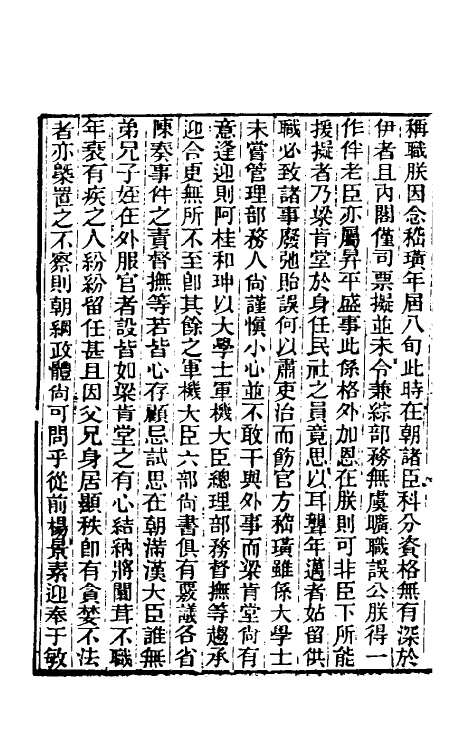 稱職朕因念嵇璜年屆八旬此時在朝諸臣科分資格無有深於
伊者且內閣僅司票擬並未令兼綜部務無虞曠職誤公朕得一
作伴老臣亦屬昇平盛事此係格外加恩在朕則可非臣下所能
援擬者乃梁肯堂於身任民社之員竟思以耳聾年邁者姑留供
職必致諸事廢弛貽誤何以肅吏治而飭官方嵇璜雖係大學士
未嘗管理部務人尚謹愼小心並不敢干與外事而梁肯堂尙有
意逢迎則阿桂和珅以大學士軍機大臣總理部務督撫等趨承
迎合更無所不至卽其餘之軍機大臣六部尙書俱有覈議各省
陳奏事件之責督撫等若皆心存顧忌試思在朝滿漢大臣誰無
弟兄子姪在外服官者設皆如梁肯堂之有心結納將闒茸不職
年衰有疾之人紛紛留任甚且因父兄身居顯秩卽有貪婪不法
者亦槩置之不察則朝綱政體尙可問乎從前楊景素迎奉于敏